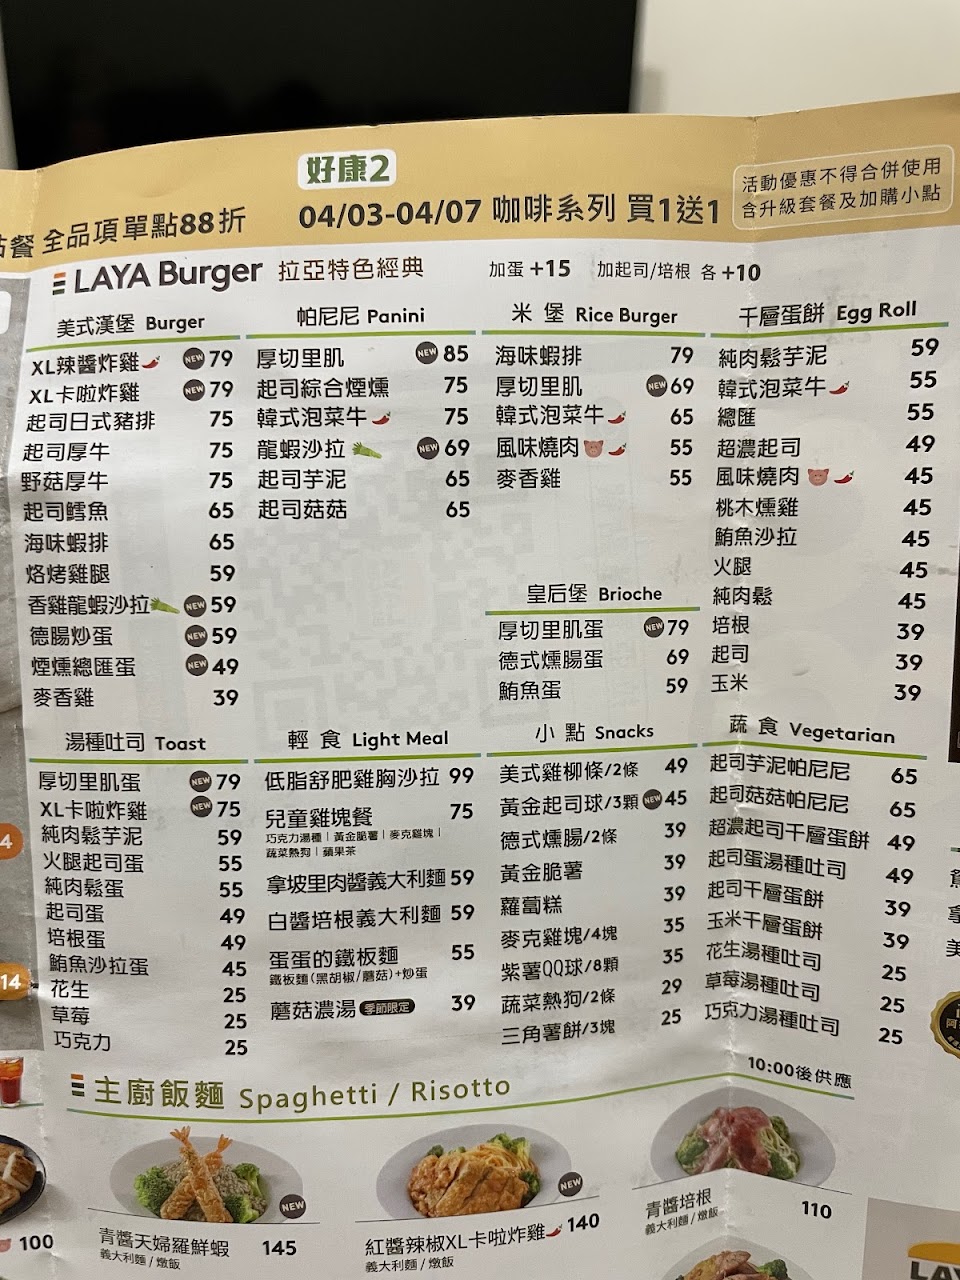 好康2
餐 全品項單點88折
04/03-04/07 咖啡系列 買1送1
活動優惠不得合併使用
含升級套餐及加購小點
LAYA Burger 拉亞特色經典
加蛋+15 加起司/培根 各+10
美式漢堡 Burger
XL辣醬炸雞 NEW 79
XL卡啦炸雞 NEW 79
起司日式豬排 75
起司厚牛 75
野菇厚牛 75
起司鱈魚 65
海味蝦排 65
烙烤雞腿 59
香雞龍蝦沙拉 NEW 59
德腸炒蛋 NEW 59
煙燻總匯蛋 NEW 49
麥香雞 39
帕尼尼 Panini
厚切里肌 NEW 85
起司綜合煙燻 75
韓式泡菜牛 75
龍蝦沙拉 NEW 69
起司芋泥 65
起司菇菇 65
米堡 Rice Burger
海味蝦排 79
厚切里肌 NEW 69
韓式泡菜牛 65
風味燒肉 55
麥香雞 55
皇后堡 Brioche
厚切里肌蛋 NEW 79
德式燻腸蛋 69
鮪魚蛋 59
千層蛋餅 Egg Roll
純肉鬆芋泥 59
韓式泡菜牛 55
總匯 55
超濃起司 49
風味燒肉 45
桃木燻雞 45
鮪魚沙拉 45
火腿 45
純肉鬆 45
培根 39
起司 39
玉米 39
湯種吐司 Toast
厚切里肌蛋 NEW 79
XL卡啦炸雞 NEW 75
純肉鬆芋泥 59
火腿起司蛋 55
純肉鬆蛋 55
起司蛋 49
培根蛋 49
鮪魚沙拉蛋 45
花生 25
草莓 25
巧克力 25
輕食 Light Meal
低脂舒肥雞胸沙拉 99
兒童雞塊餐 75
巧克力湯種|黃金脆薯|麥克雞塊|
蔬菜熱狗|蘋果茶
拿坡里肉醬義大利麵 59
白醬培根義大利麵 59
蛋蛋的鐵板麵 55
鐵板麵(黑胡椒/蘑菇)+炒蛋
蘑菇濃湯 季節限定 39
小點 Snacks
美式雞柳條/2條 49
黃金起司球/3顆 NEW 45
德式燻腸/2條 39
黃金脆薯 39
蘿蔔糕 39
麥克雞塊/4塊 35
紫薯QQ球/8顆 35
蔬菜熱狗/2條 29
三角薯餅/3塊 25
蔬食 Vegetarian
起司芋泥帕尼尼 65
起司菇菇帕尼尼 65
超濃起司千層蛋餅 49
起司蛋湯種吐司 49
起司千層蛋餅 39
玉米千層蛋餅 39
花生湯種吐司 25
草莓湯種吐司 25
巧克力湯種吐司 25
主廚飯麵 Spaghetti / Risotto
10:00後供應
青醬天婦羅鮮蝦 145
義大利麵 / 燉飯
NEW
紅醬辣椒XL卡啦炸雞 140
義大利麵 / 燉飯
NEW
青醬培根 110
義大利麵 / 燉飯
100
4
14